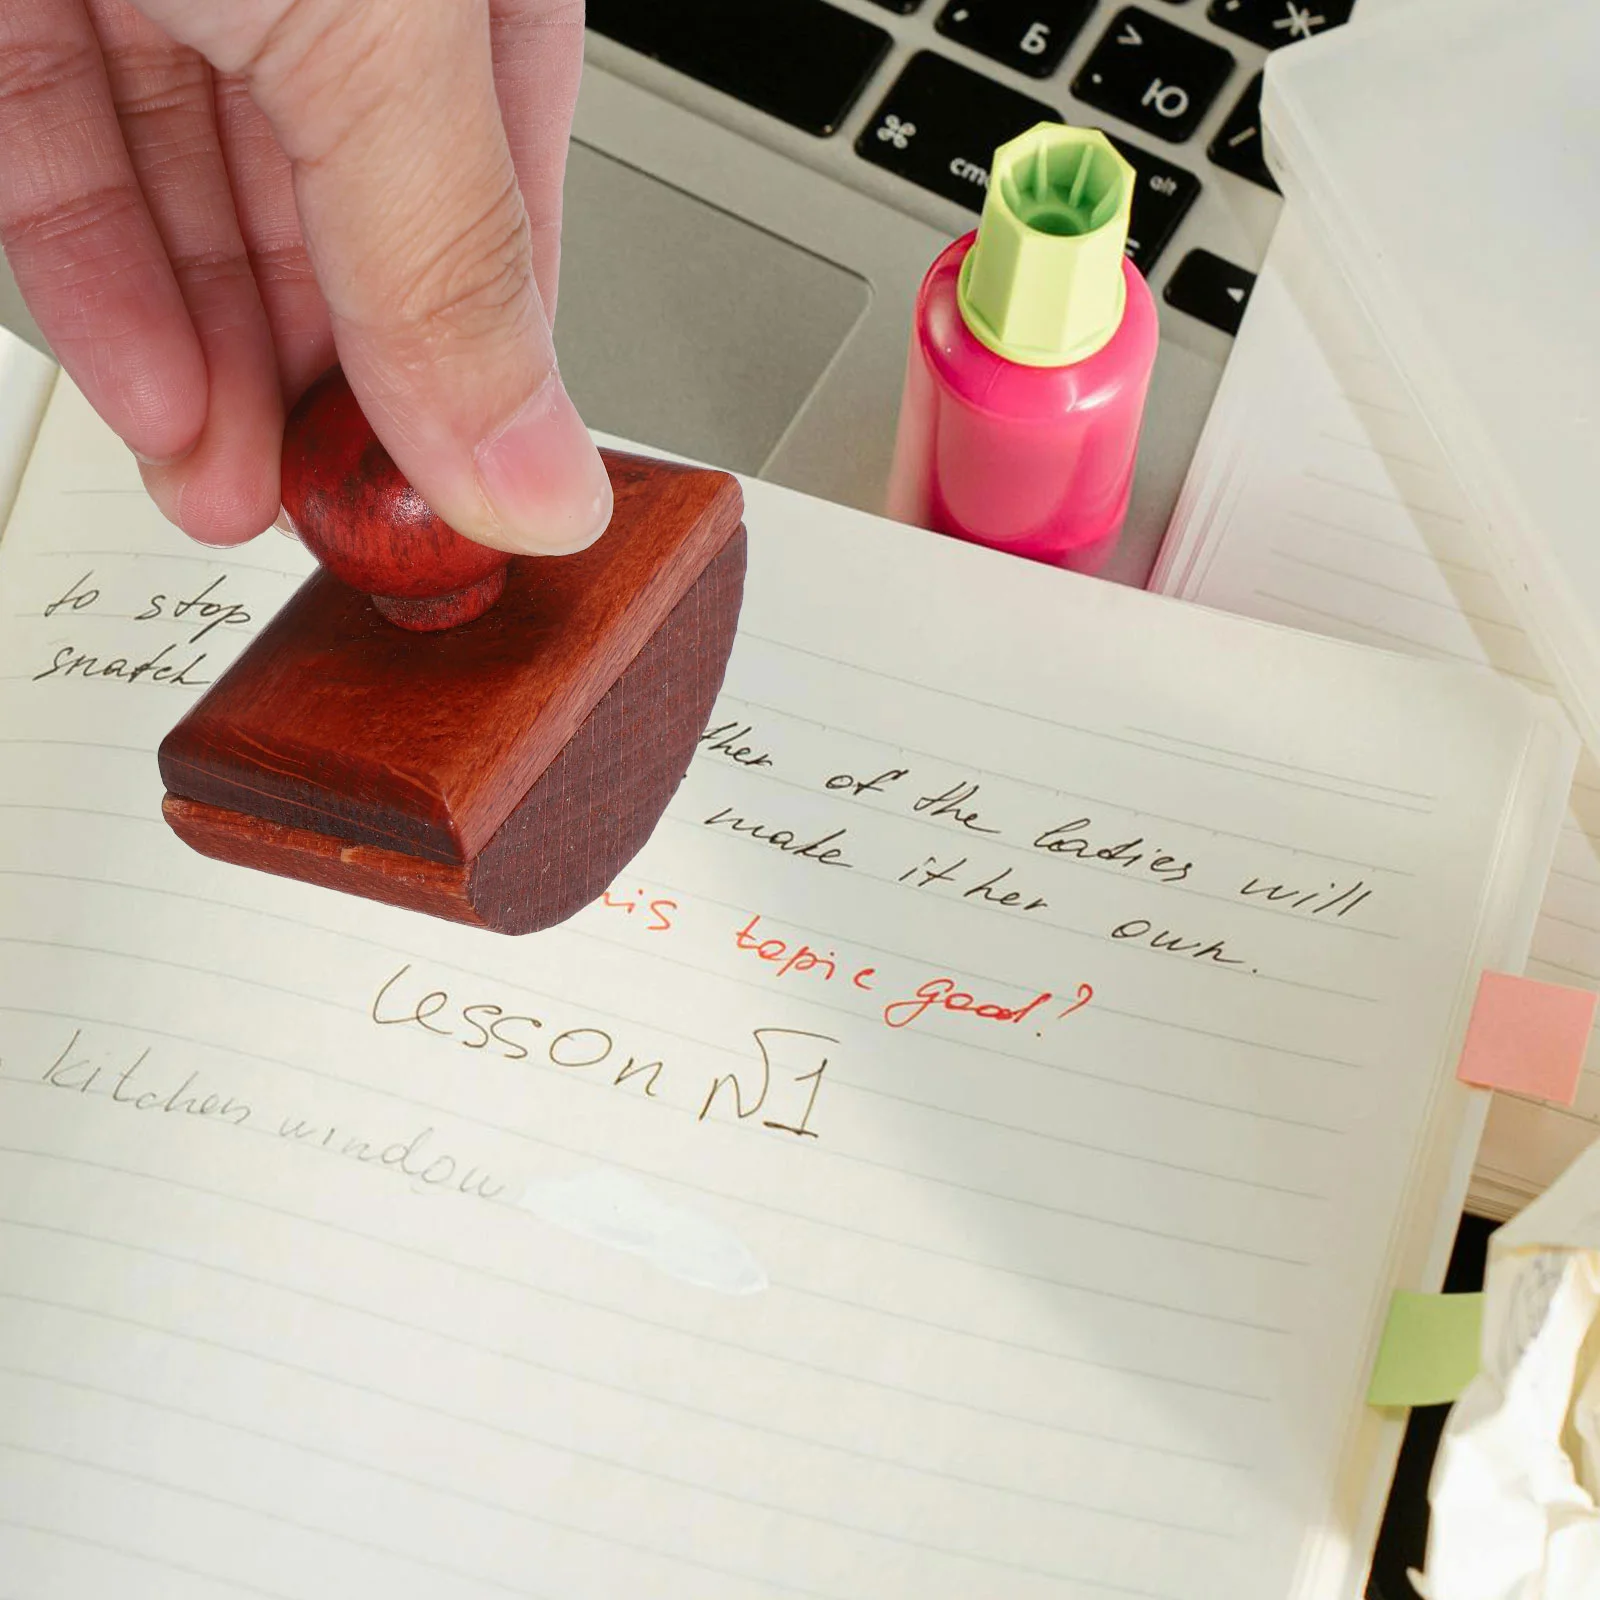 Б
Ж
>
.
Ю
⌘
cmd
alt
/
◄
to stop
snatch
of the ladies will
make it her own.
topic good?
Lesson №1
kitchen window